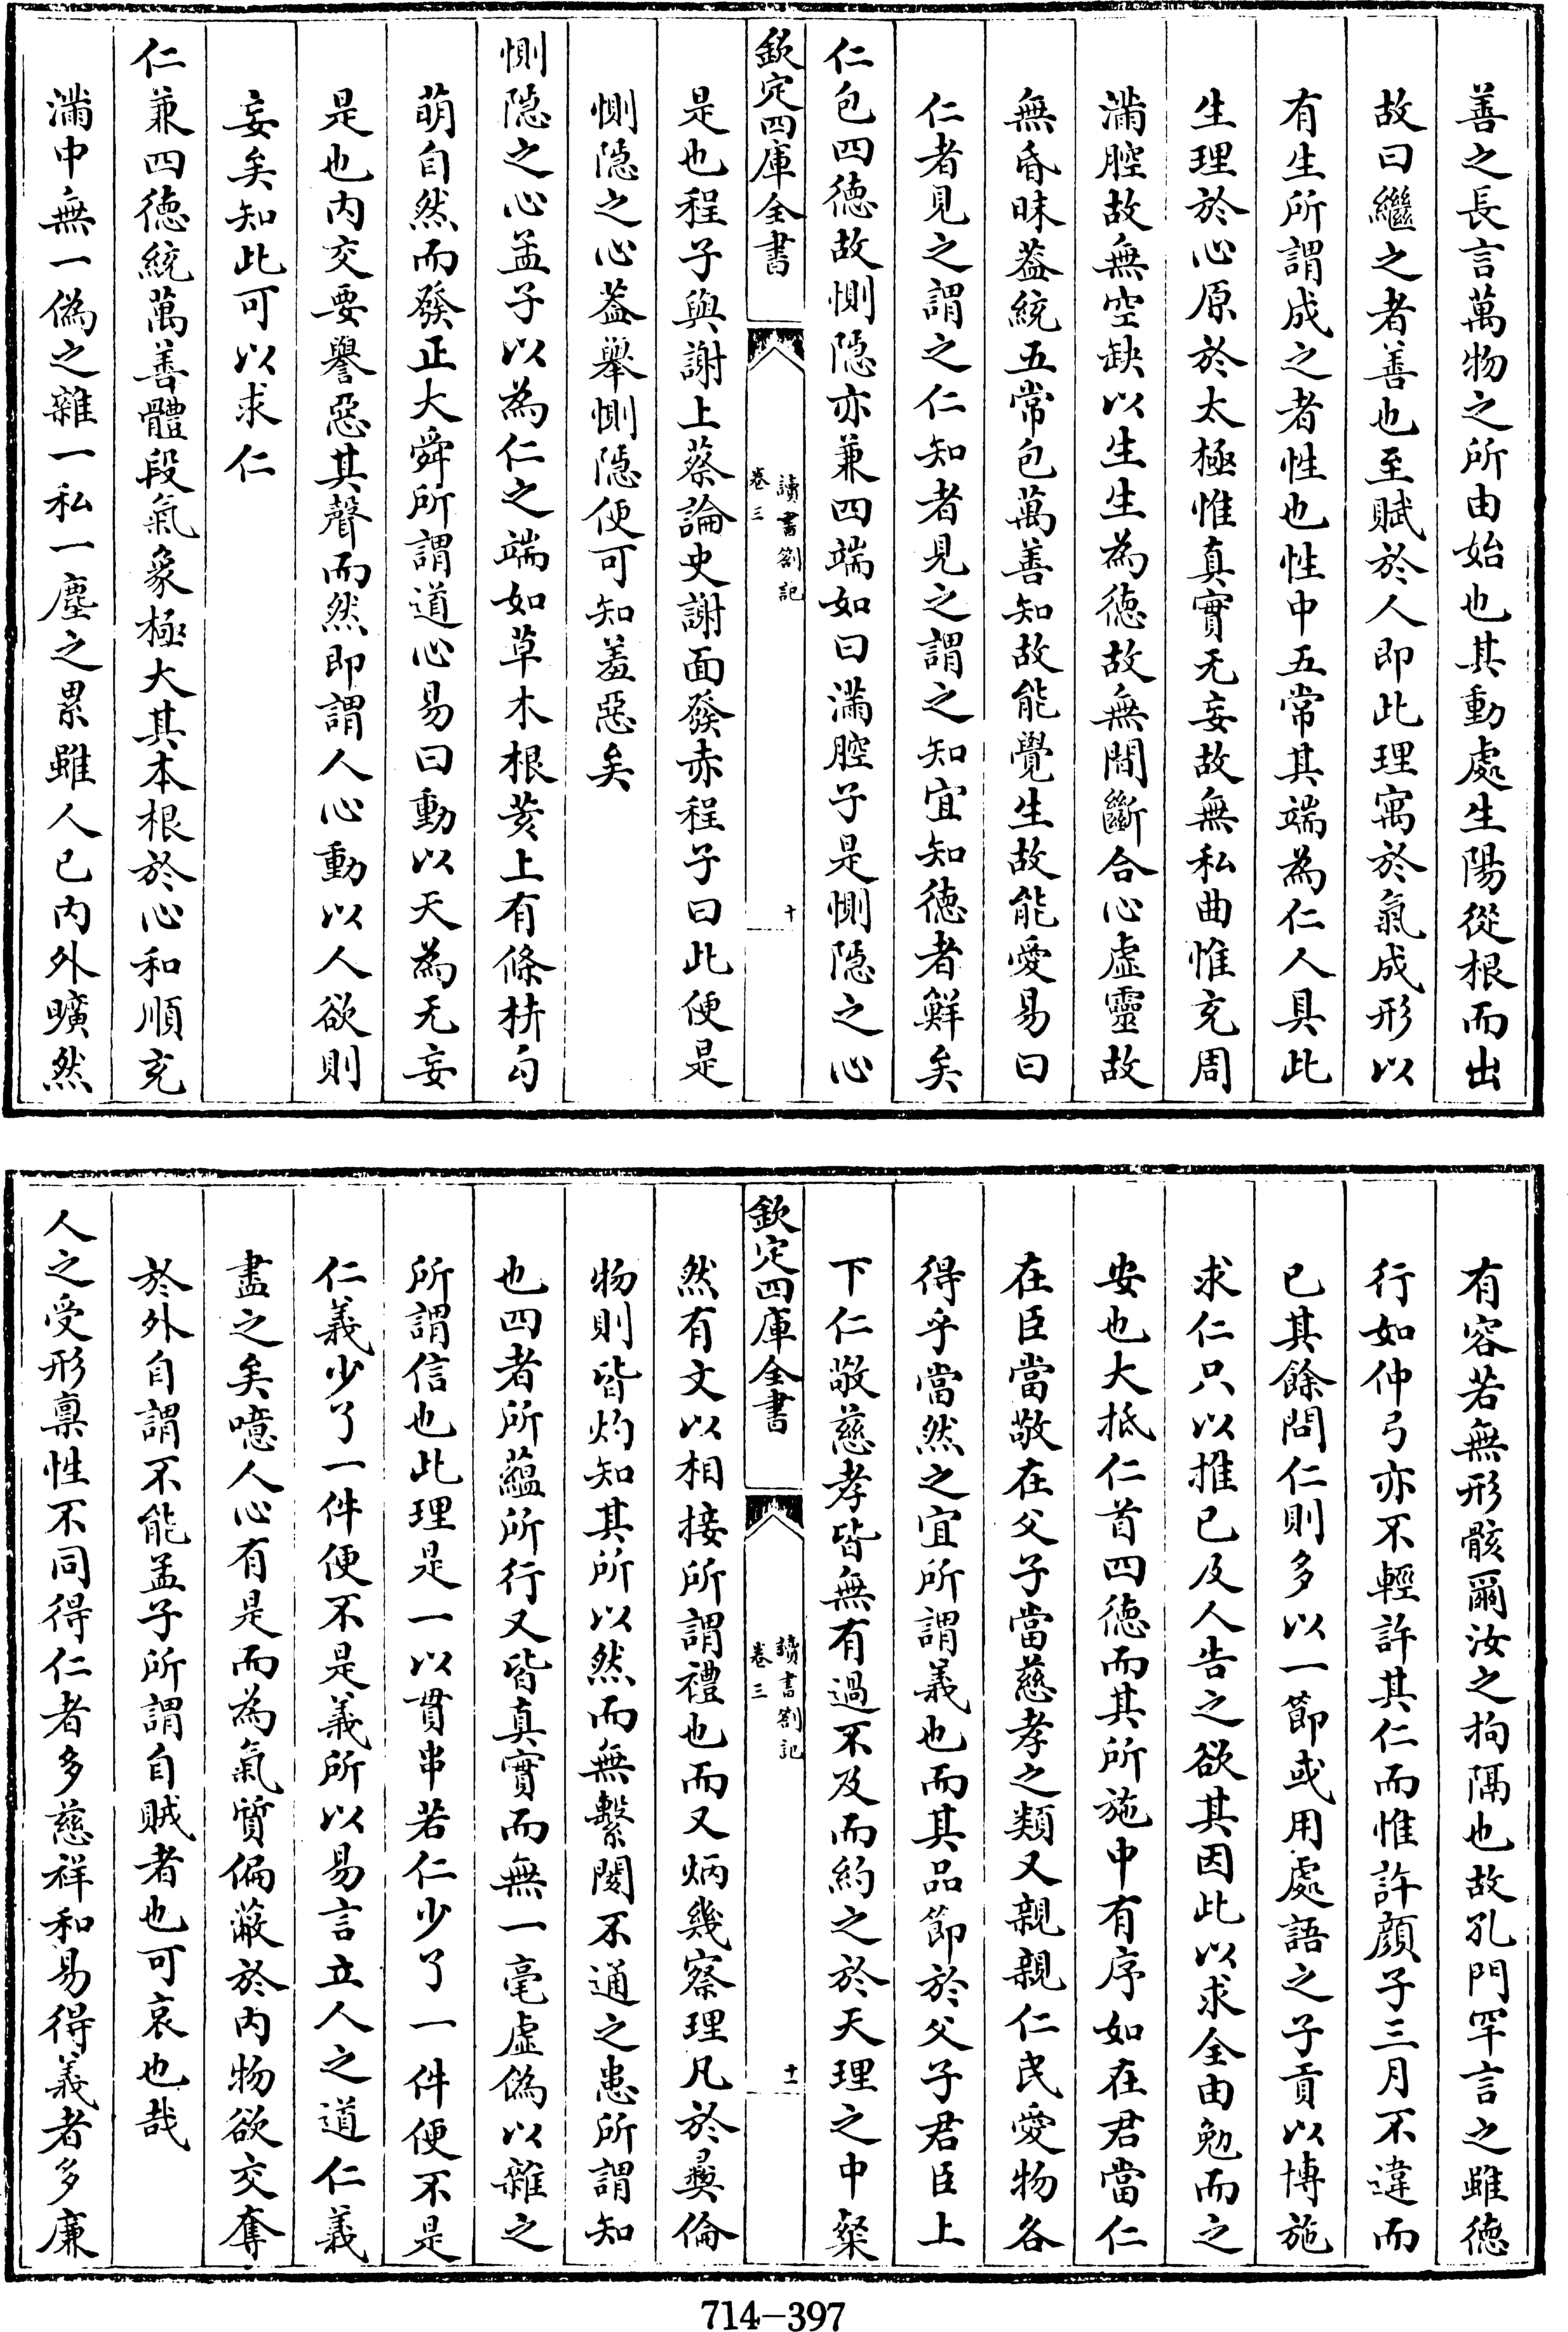 善之長言萬物之所由始也其動處生陽從根而出
故曰繼之者善也至賦於人即此理寓於氣成形以
有生所謂成之者性也性中五常其端為仁人具此
生理於心原於太極惟真實无妄故無私曲惟充周
滿腔故無空缺以生生為德故無間斷合心虛靈故
無昏昧葢統五常包萬善知故能覺生故能愛易曰
仁者見之謂之仁知者見之謂之知宜知德者鮮矣
仁包四德故惻隠亦兼四端如曰滿腔子是惻隠之心
欽定四庫全書
讀書劄記
卷三
十
是也程子與謝上蔡論史謝面發赤程子曰此便是
惻隠之心葢舉惻隠便可知羞惡矣
惻隠之心孟子以為仁之端如草木根荄上有條枿勾
萌自然而發正大舜所謂道心易曰動以天為无妄
是也内交要譽惡其聲而然即謂人心動以人欲則
妄矣知此可以求仁
仁兼四德統萬善體段氣象極大其本根於心和順充
滿中無一偽之雜一私一塵之累雖人已内外曠然
有容若無形骸爾汝之拘隔也故孔門罕言之雖德
行如仲弓亦不輕許其仁而惟許顔子三月不違而
已其餘問仁則多以一節或用處語之子貢以博施
求仁只以推已及人告之欲其因此以求全由勉而之
安也大抵仁首四德而其所施中有序如在君當仁
在臣當敬在父子當慈孝之類又親親仁民愛物各
得乎當然之宜所謂義也而其品節於父子君臣上
下仁敬慈孝皆無有過不及而約之於天理之中粲
欽定四庫全書
讀書劄記
卷三
十一
然有文以相接所謂禮也而又炳幾察理凡於彛倫
物則皆灼知其所以然而無繫閡不通之患所謂知
也四者所蘊所行又皆真實而無一毫虛偽以雜之
所謂信也此理是一以貫串若仁少了一件便不是
仁義少了一件便不是義所以易言立人之道仁義
盡之矣噫人心有是而為氣質偏蔽於内物欲交奪
於外自謂不能孟子所謂自賊者也可哀也哉
人之受形禀性不同得仁者多慈祥和易得義者多廉
714-397